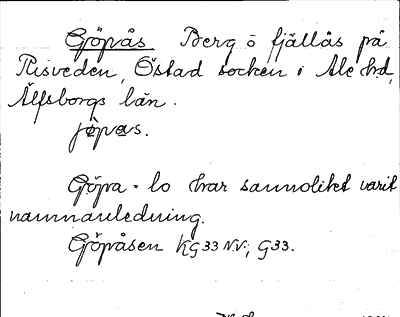 Göpås. Berg o fjällås på
Risveden, Östad socken i Ale hd,
Älfsborgs län.
jöpås.
Göpa = lo har sannolikt varit
namnanledning.
Göpåsen KG33 NV; G33.